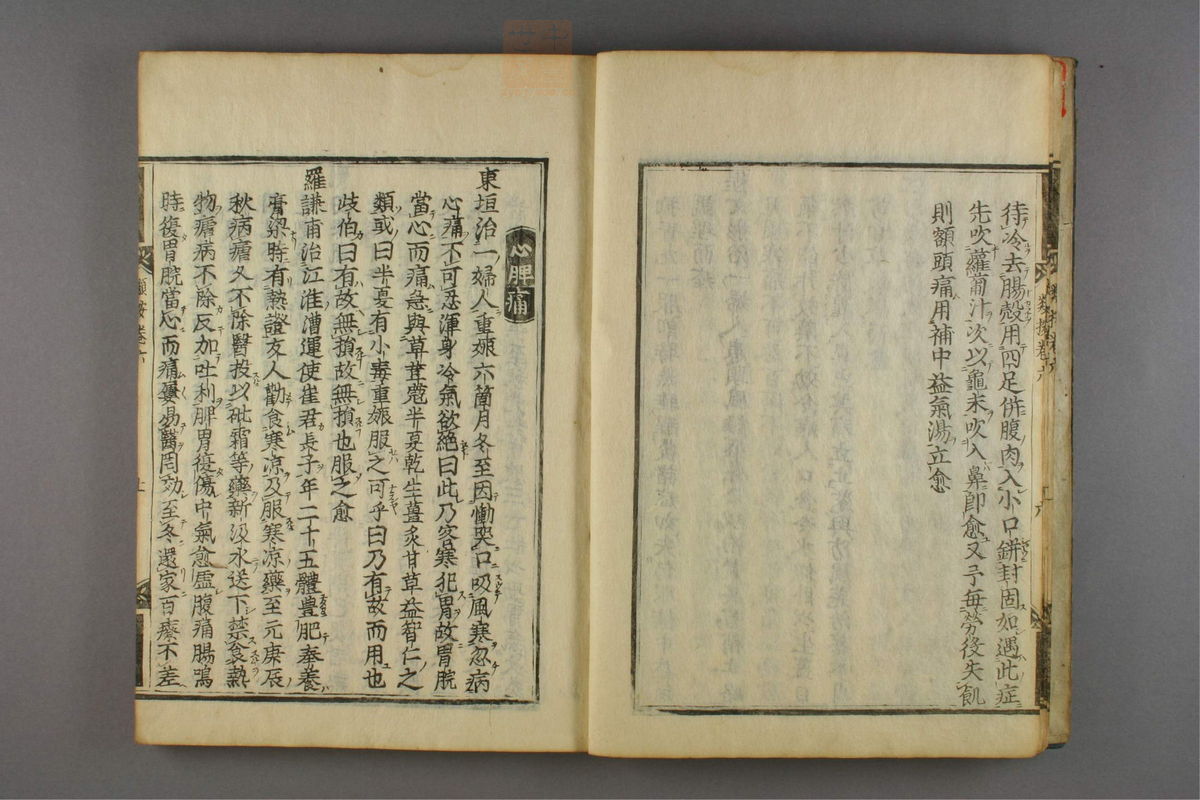 待冷去腸殻用四足併腹肉入小口鉼封固如遇此症
先吹蘿蔔汁次以龜末吹入鼻即愈又予每勞後失飢
則額頭痛用補中益氣湯立愈
心脾痛
東垣治一婦人重娠六箇月冬至因慟哭口吸風寒忽病
心痛不可忍渾身冷氣欲絕曰此乃客寒犯胃故胃脘
當心而痛急與草荳蔻半夏乾生薑炙甘草益智仁之
類或曰半夏有小毒重娠服之可乎曰乃有故而用也
歧伯曰有故無損故無損也服之愈
羅謙甫治江淮漕運使崔君長子年二十五體豊肥奉養
膏粱時有熱證友人勸食寒凉及服寒凉藥至元庚辰
秋病瘧久不除醫投以砒霜等藥新汲水送下禁食熱
物瘧病不除反加吐利脾胃復傷中氣愈虛腹痛腸鳴
時復胃脘當心而痛屢易醫罔効至冬還家百療不差